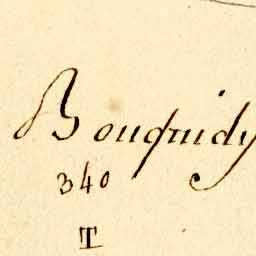 Bouquidy
340
T